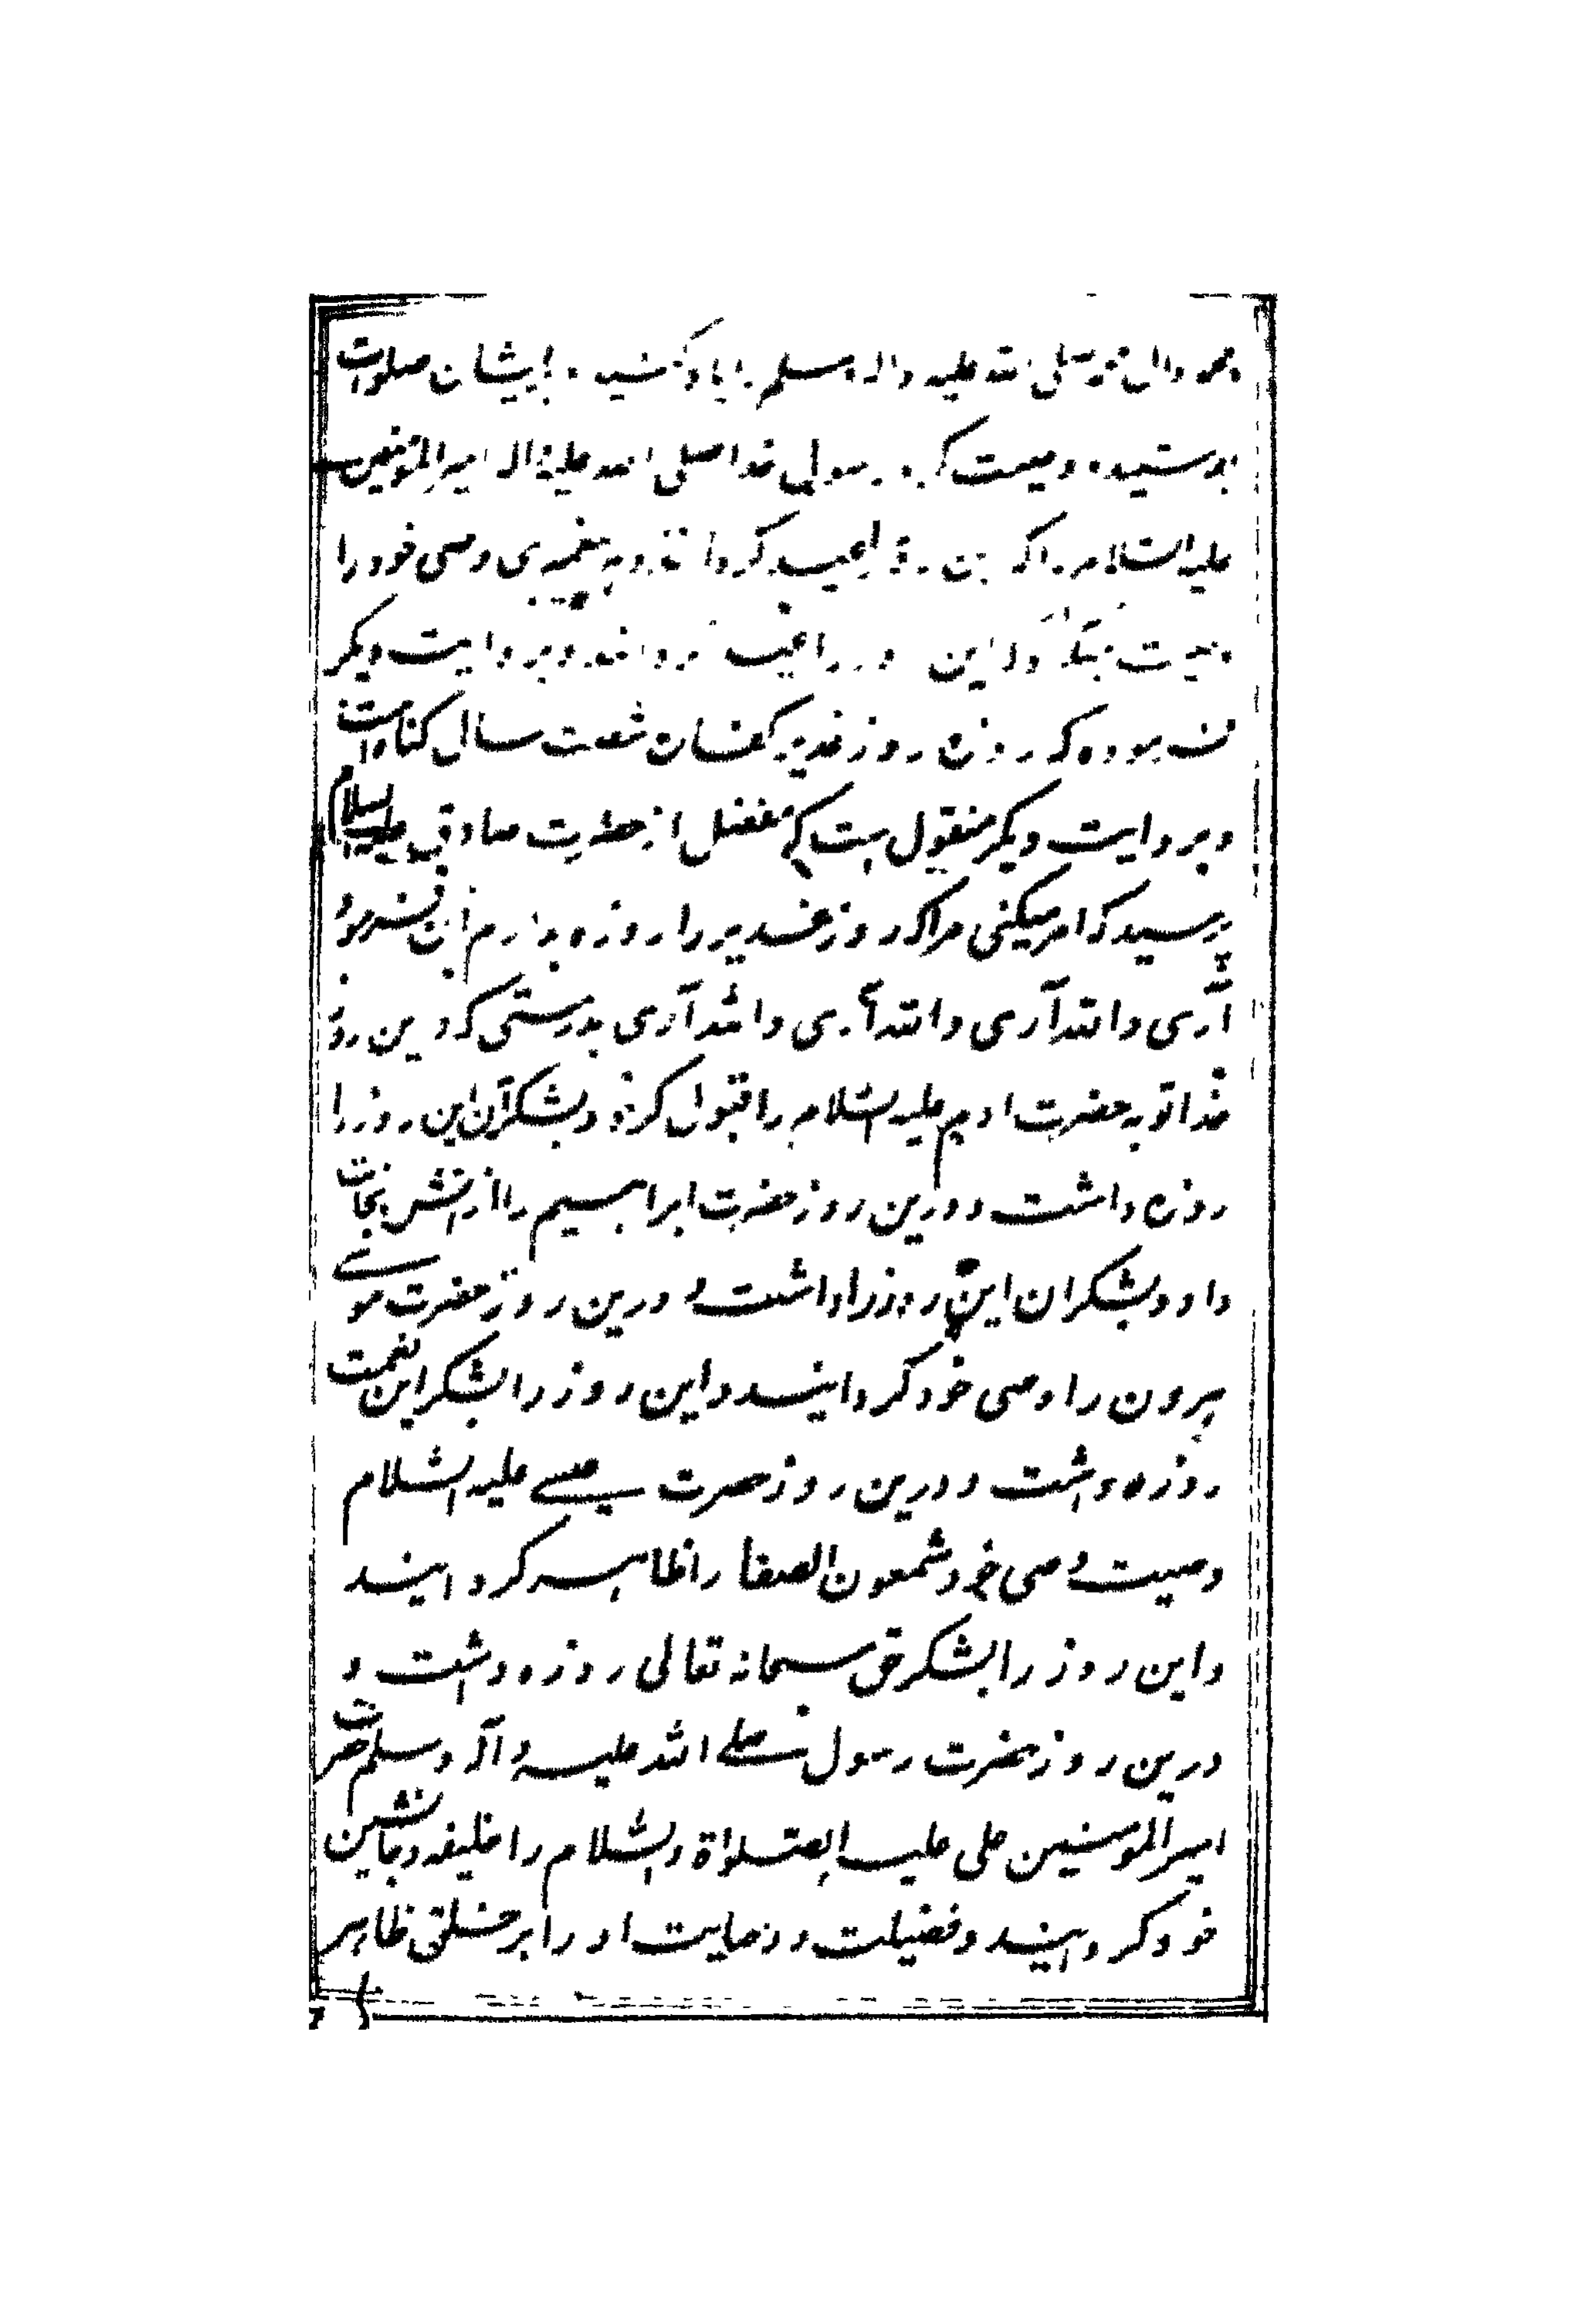 محمد وال محمد صلی الله علیه واله وسلم را یاد کنید و بایشان صلوات
بفرستید وصیت کرد رسول خدا صلی الله علیه واله امیرالمؤمنین
علیه السلام را که این روز را عید کردانند و هر پیغمبری وصی خود را
وصیت میکرد که این روز را عید کردانند و بروایت دیکر
فرموده که روزه روز غدیر کفاره شصت سال کناه است
و بروایت دیکر منقول است که مفضل از حضرت صادق علیه السلام
پرسید که امر میکنی مرا که روز غدیر را روزه بدارم آن فرمود
آری والله آری والله آری والله آری بدرستی که درین روز
خدا توبه حضرت ادم علیه السلام را قبول کرد و بشکر آن این روز را
روزه داشت و درین روز حضرت ابراهیم را از آتش نجات
داد و بشکران این روز را داشت و درین روز حضرت موسے
هرون را وصی خود کردانید و این روز را بشکر این نعمت
روزه داشت و درین روز حضرت عیسے علیه السلام
وصیت وصی خود شمعون الصفا را ظاهر کردانید
و این روز را بشکر حق سبحانه تعالی روزه داشت و
درین روز حضرت رسول صلے الله علیه و آله وسلم حضرت
امیرالمومنین علی علیه الصلواة والسلام را خلیفه و جانشین
خود کردانید و فضیلت و وصایت او را بر خلق ظاهر